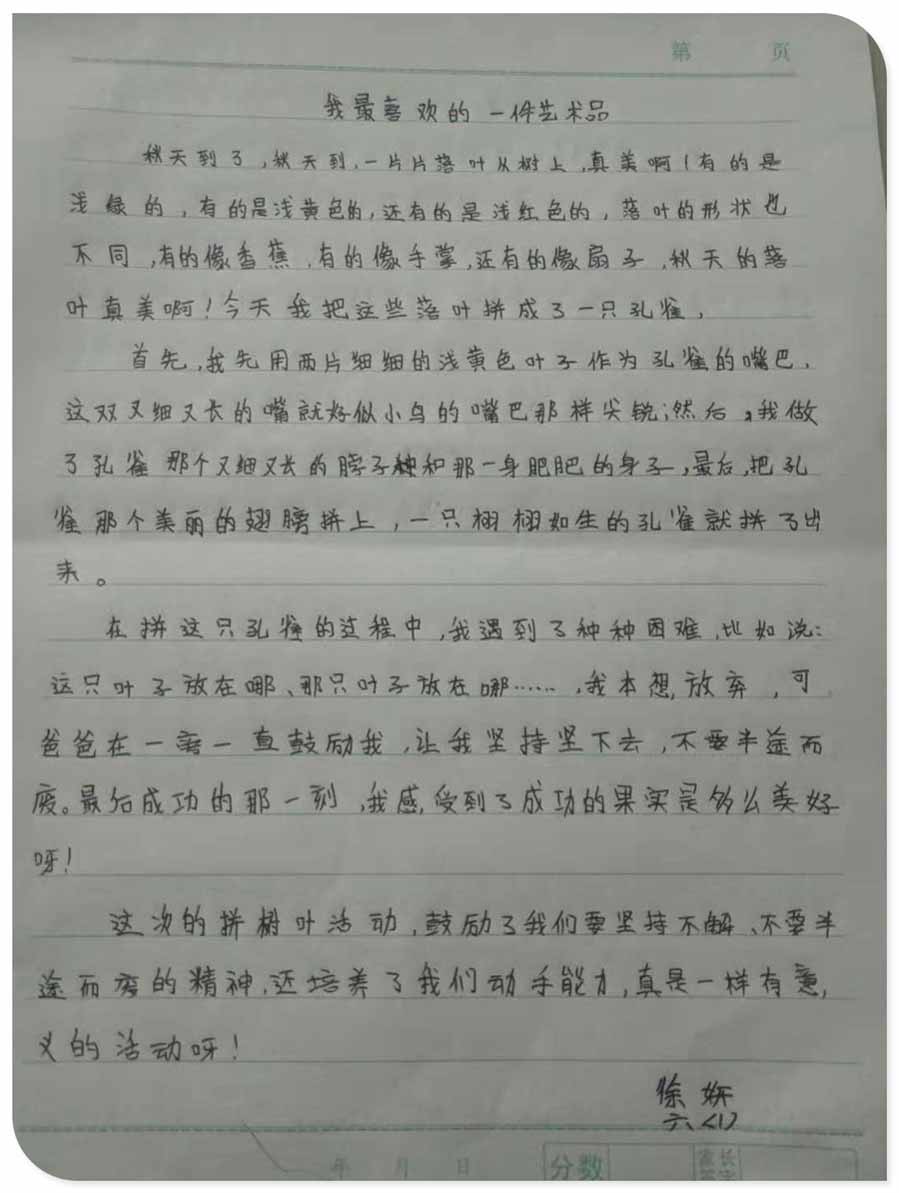 第 页
我最喜欢的一件艺术品
秋天到了,秋天到,一片片落叶从树上,真美啊!有的是
浅绿的,有的是浅黄色的,还有的是浅红色的,落叶的形状也
不同,有的像香蕉,有的像手掌,还有的像扇子,秋天的落
叶真美啊!今天我把这些落叶拼成了一只孔雀,
首先,我先用两片细细的浅黄色叶子作为孔雀的嘴巴,
这双又细又长的嘴就好似小鸟的嘴巴那样尖锐;然后,我做
了孔雀那个又细又长的脖子和那一身肥肥的身子,最后,把孔
雀那个美丽的翅膀拼上,一只栩栩如生的孔雀就拼了出
来。
在拼这只孔雀的过程中,我遇到了种种困难,比如说:
这只叶子放在哪、那只叶子放在哪……,我本想放弃,可
爸爸在一旁一直鼓励我,让我坚持坚下去,不要半途而
废。最后成功的那一刻,我感受到了成功的果实是多么美好
呀!
这次的拼树叶活动,鼓励了我们要坚持不解、不要半
途而废的精神,还培养了我们动手能力,真是一样有意
义的活动呀!
徐妍
六(1)
年 月 日 分数 家长签字